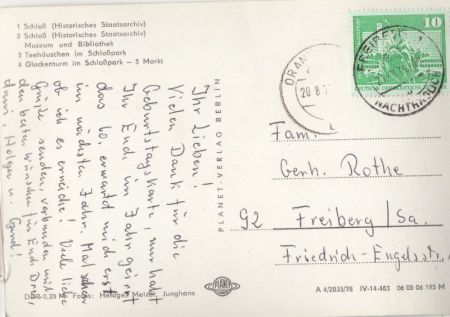 1 Schloß (Historisches Staatsarchiv)
2 Schloß (Historisches Staatsarchiv)
Museum und Bibliothek
3 Teehäuschen im Schloßpark
4 Glockenturm im Schloßpark – 5 Markt
Ihr Lieben!
Vielen Dank für die
Geburtstagskarte, nur habt
Ihr Euch im Jahr geirrt
das 60. erwartet mich erst
im nächsten Jahr. Mal sehen
ob ich es erreiche! Viele liebe
Grüße senden, verbunden mit
den besten Wünschen für Euch Drei,
Holger u.
DDR 0,20 M Fotos: Heldges Melzer, Junghans
PLANET-VERLAG BERLIN
PLANET
10
DEUTSCHE DEMOKRATISCHE REPUBLIK
ORAN
20.8.
FREIBERG 1
NACHTRÄGLICH
Fam.
Gerh. Rothe
92 Freiberg/Sa.
Friedrich-Engelsstr.
A 4/2035/78 IV-14-483 06 08 06 195 M